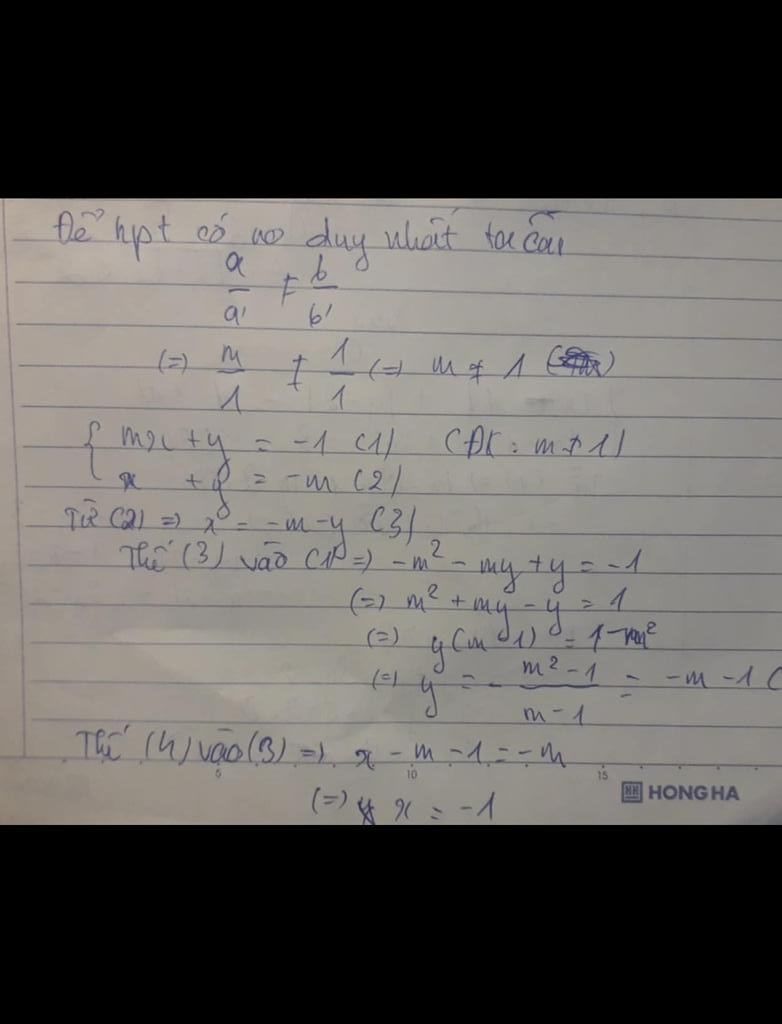 Để hpt có no duy nhất ta cần
a/a' ≠ b/b'
(=) m/1 ≠ 1/1 (=) m ≠ 1
{ mx + y = -1 (1) (ĐK: m ≠ 1)
x + y = -m (2)
Từ (2) => x = -m - y (3)
Thế (3) vào (1) => -m² - my + y = -1
(=) m² + my - y = 1
(=) y(m - 1) = 1 - m²
(=) y = - (m² - 1)/(m - 1) = -m - 1 (
Thế (4) vào (3) => x - m - 1 = -m
5 10 15
HONG HA
(=) x = -1